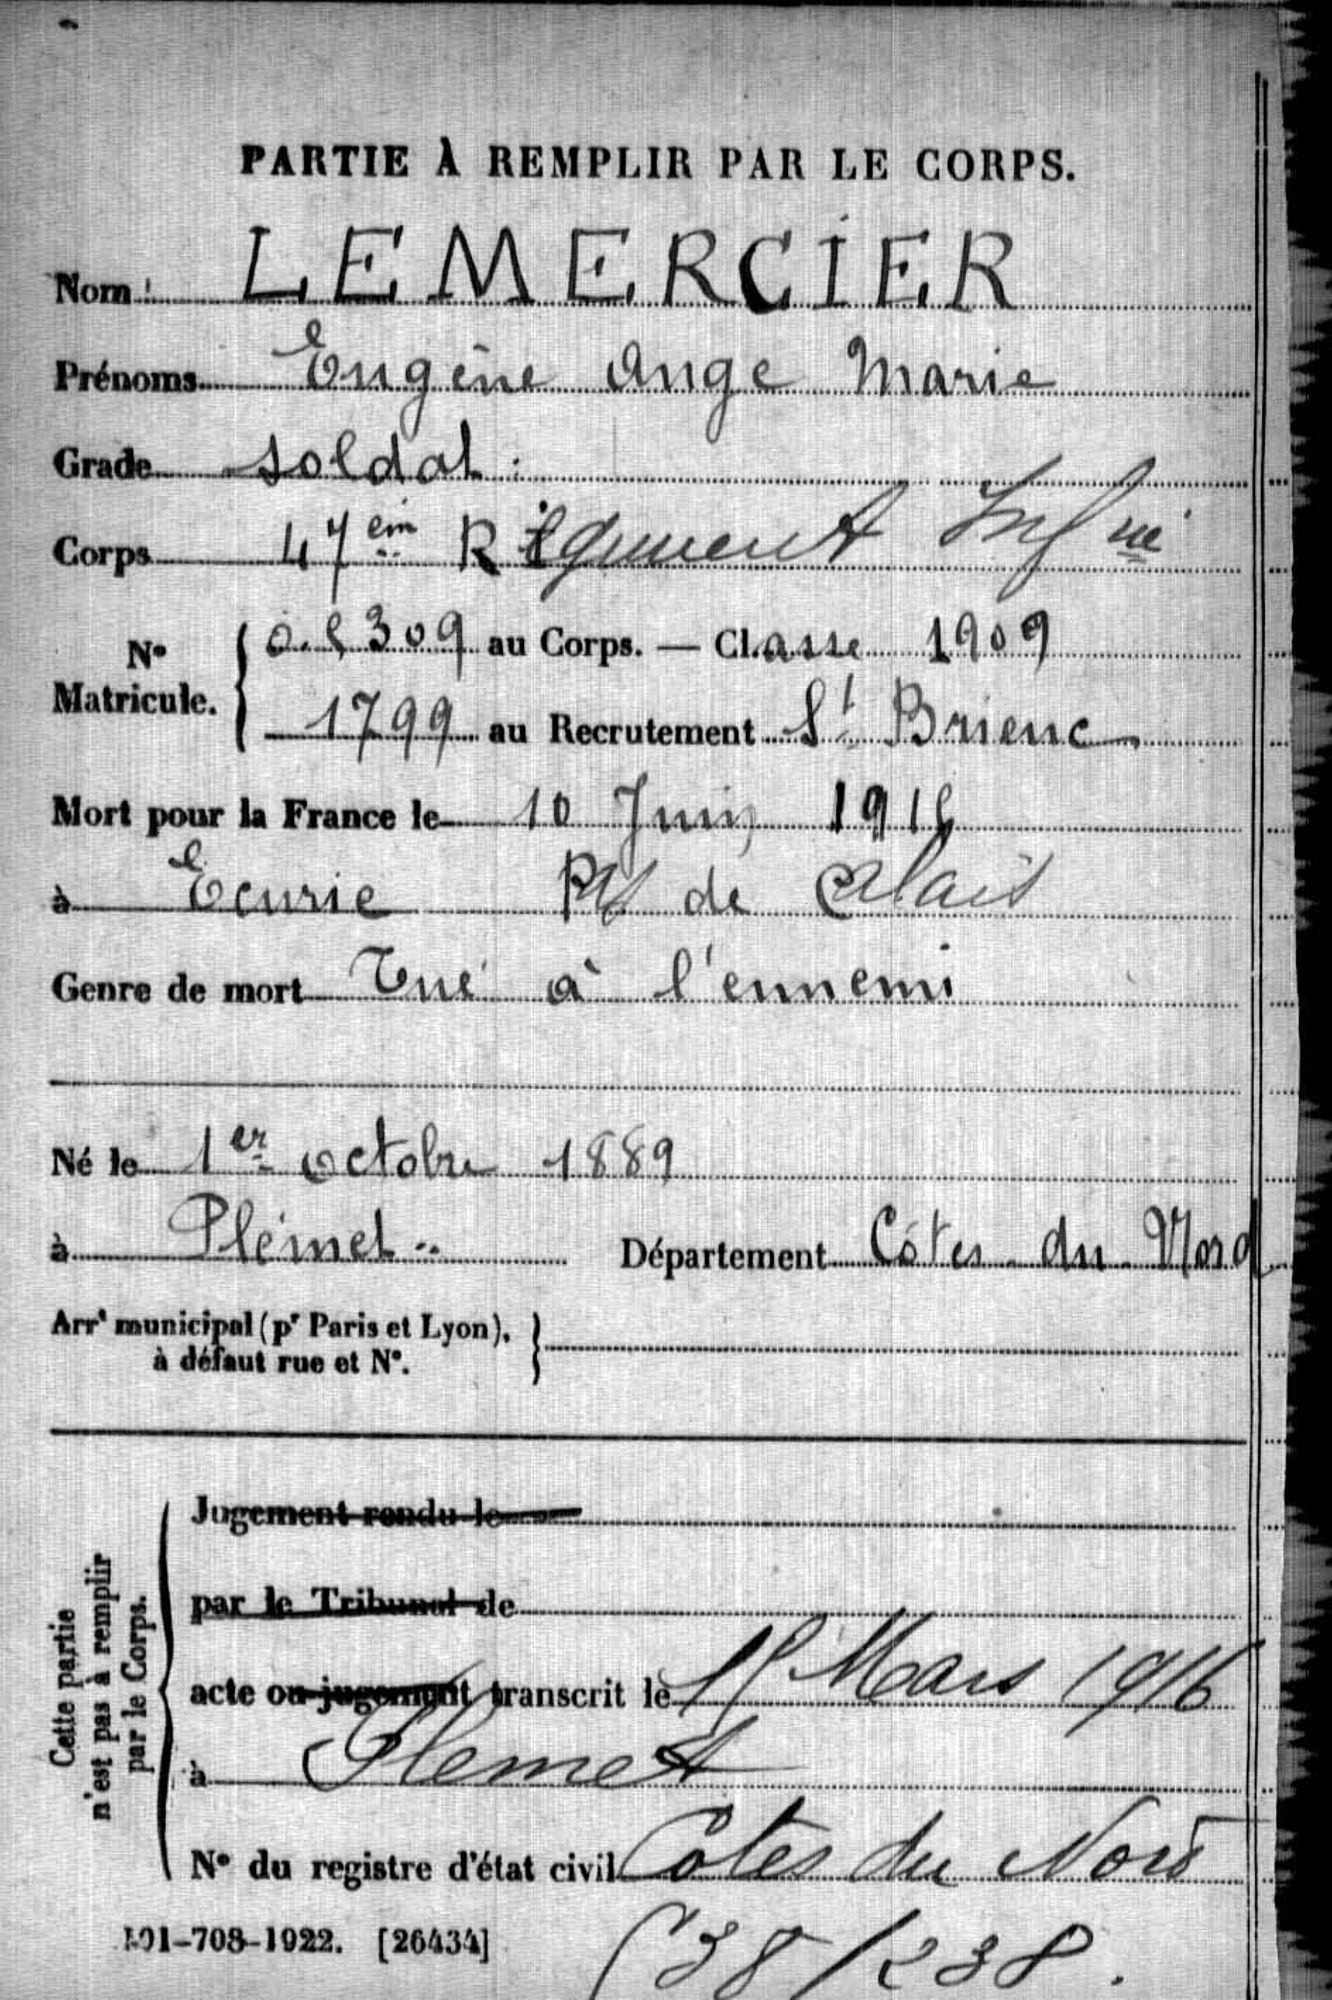 PARTIE À REMPLIR PAR LE CORPS.
Nom: LEMERCIER
Prénoms Eugène Ange Marie
Grade soldat:
Corps 47em Régiment Infrie
No Matricule. { 309 au Corps. — Classe 1909
1799 au Recrutement St Brieuc
Mort pour la France le 10 Juin
à Ecurie Pas de Calais
Genre de mort Tué à l'ennemi
Né le 1er octobre 1889
à Plémet Département Côtes du Nord
Arrt municipal (pr Paris et Lyon), à défaut rue et No. }
Cette partie n'est pas à remplir par le Corps.
Jugement rendu le
par le Tribunal de
acte ou jugement transcrit le Mars 1916
à Plemet
No du registre d'état civil Cotes du Nord
101-708-1922. [26434]
38/238.